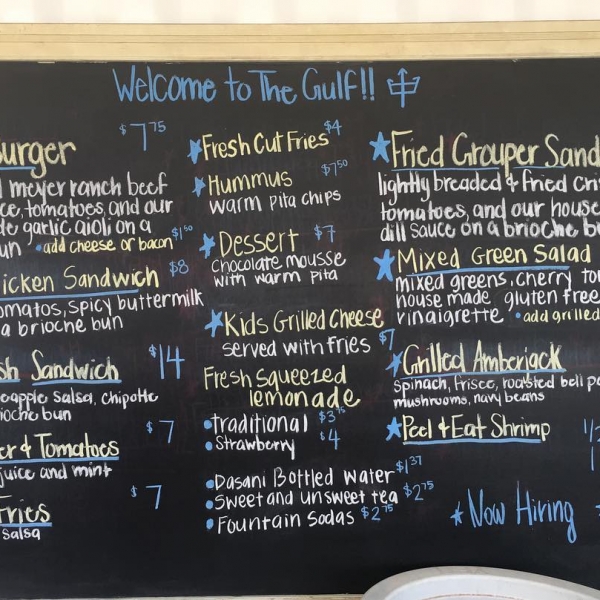 Welcome to The Gulf!!
Burger $7.75
meyer ranch beef
tomatoes, and our
garlic aioli on a
• add cheese or bacon $1.50
Chicken Sandwich $8
spicy buttermilk
a brioche bun
Sandwich $14
salsa, chipotle
& Tomatoes $7
juice and mint
Fries $7
salsa
Fresh Cut Fries $4
Hummus $7.50
warm pita chips
Dessert $7
Chocolate mousse
with warm pita
Kids Grilled Cheese
served with fries $7
Fresh Squeezed
lemonade
• traditional
• Strawberry $4
• Dasani Bottled Water $1.37
• Sweet and unsweet tea $2.75
• Fountain Sodas $2.75
Fried Grouper Sand
lightly breaded & fried
tomatoes, and our house
dill sauce on a brioche
Mixed Green Salad
mixed greens, cherry
house made gluten free
vinaigrette • add grilled
Grilled Amberjack
spinach, frisee, roasted bell
mushrooms, navy beans
Peel & Eat Shrimp
Now Hiring